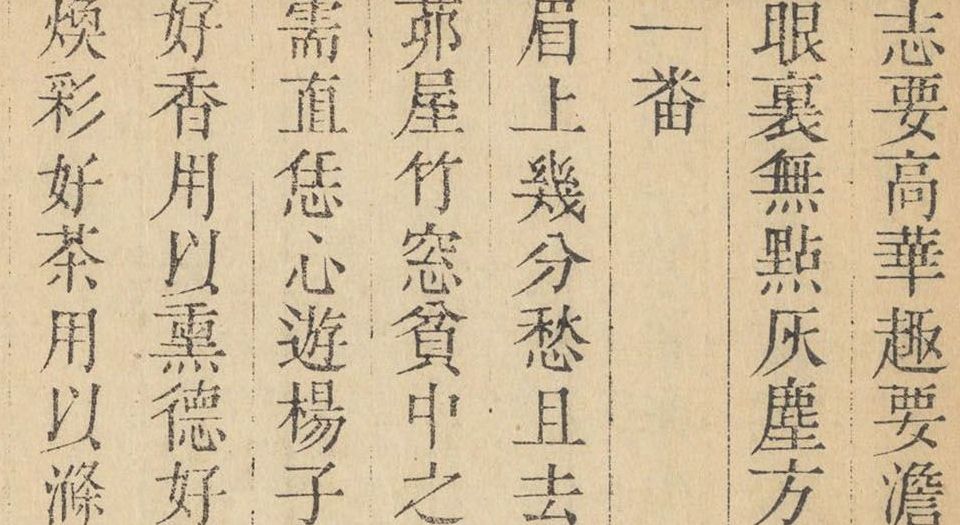 志要高華趣要澹
眼裏無點灰塵方
一畨
眉上幾分愁且去
茆屋竹窓貧中之
需直恁心遊楊子
好香用以熏德好
煥彩好茶用以滌